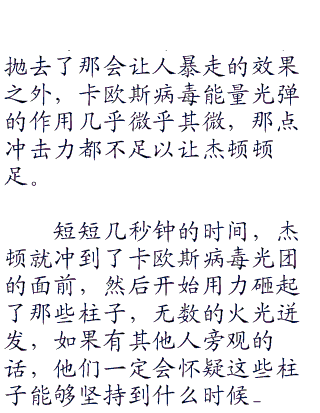 抛去了那会让人暴走的效果
之外，卡欧斯病毒能量光弹
的作用几乎微乎其微，那点
冲击力都不足以让杰顿顿
足。
短短几秒钟的时间，杰
顿就冲到了卡欧斯病毒光团
的面前，然后开始用力砸起
了那些柱子，无数的火光迸
发，如果有其他人旁观的
话，他们一定会怀疑这些柱
子能够坚持到什么时候_